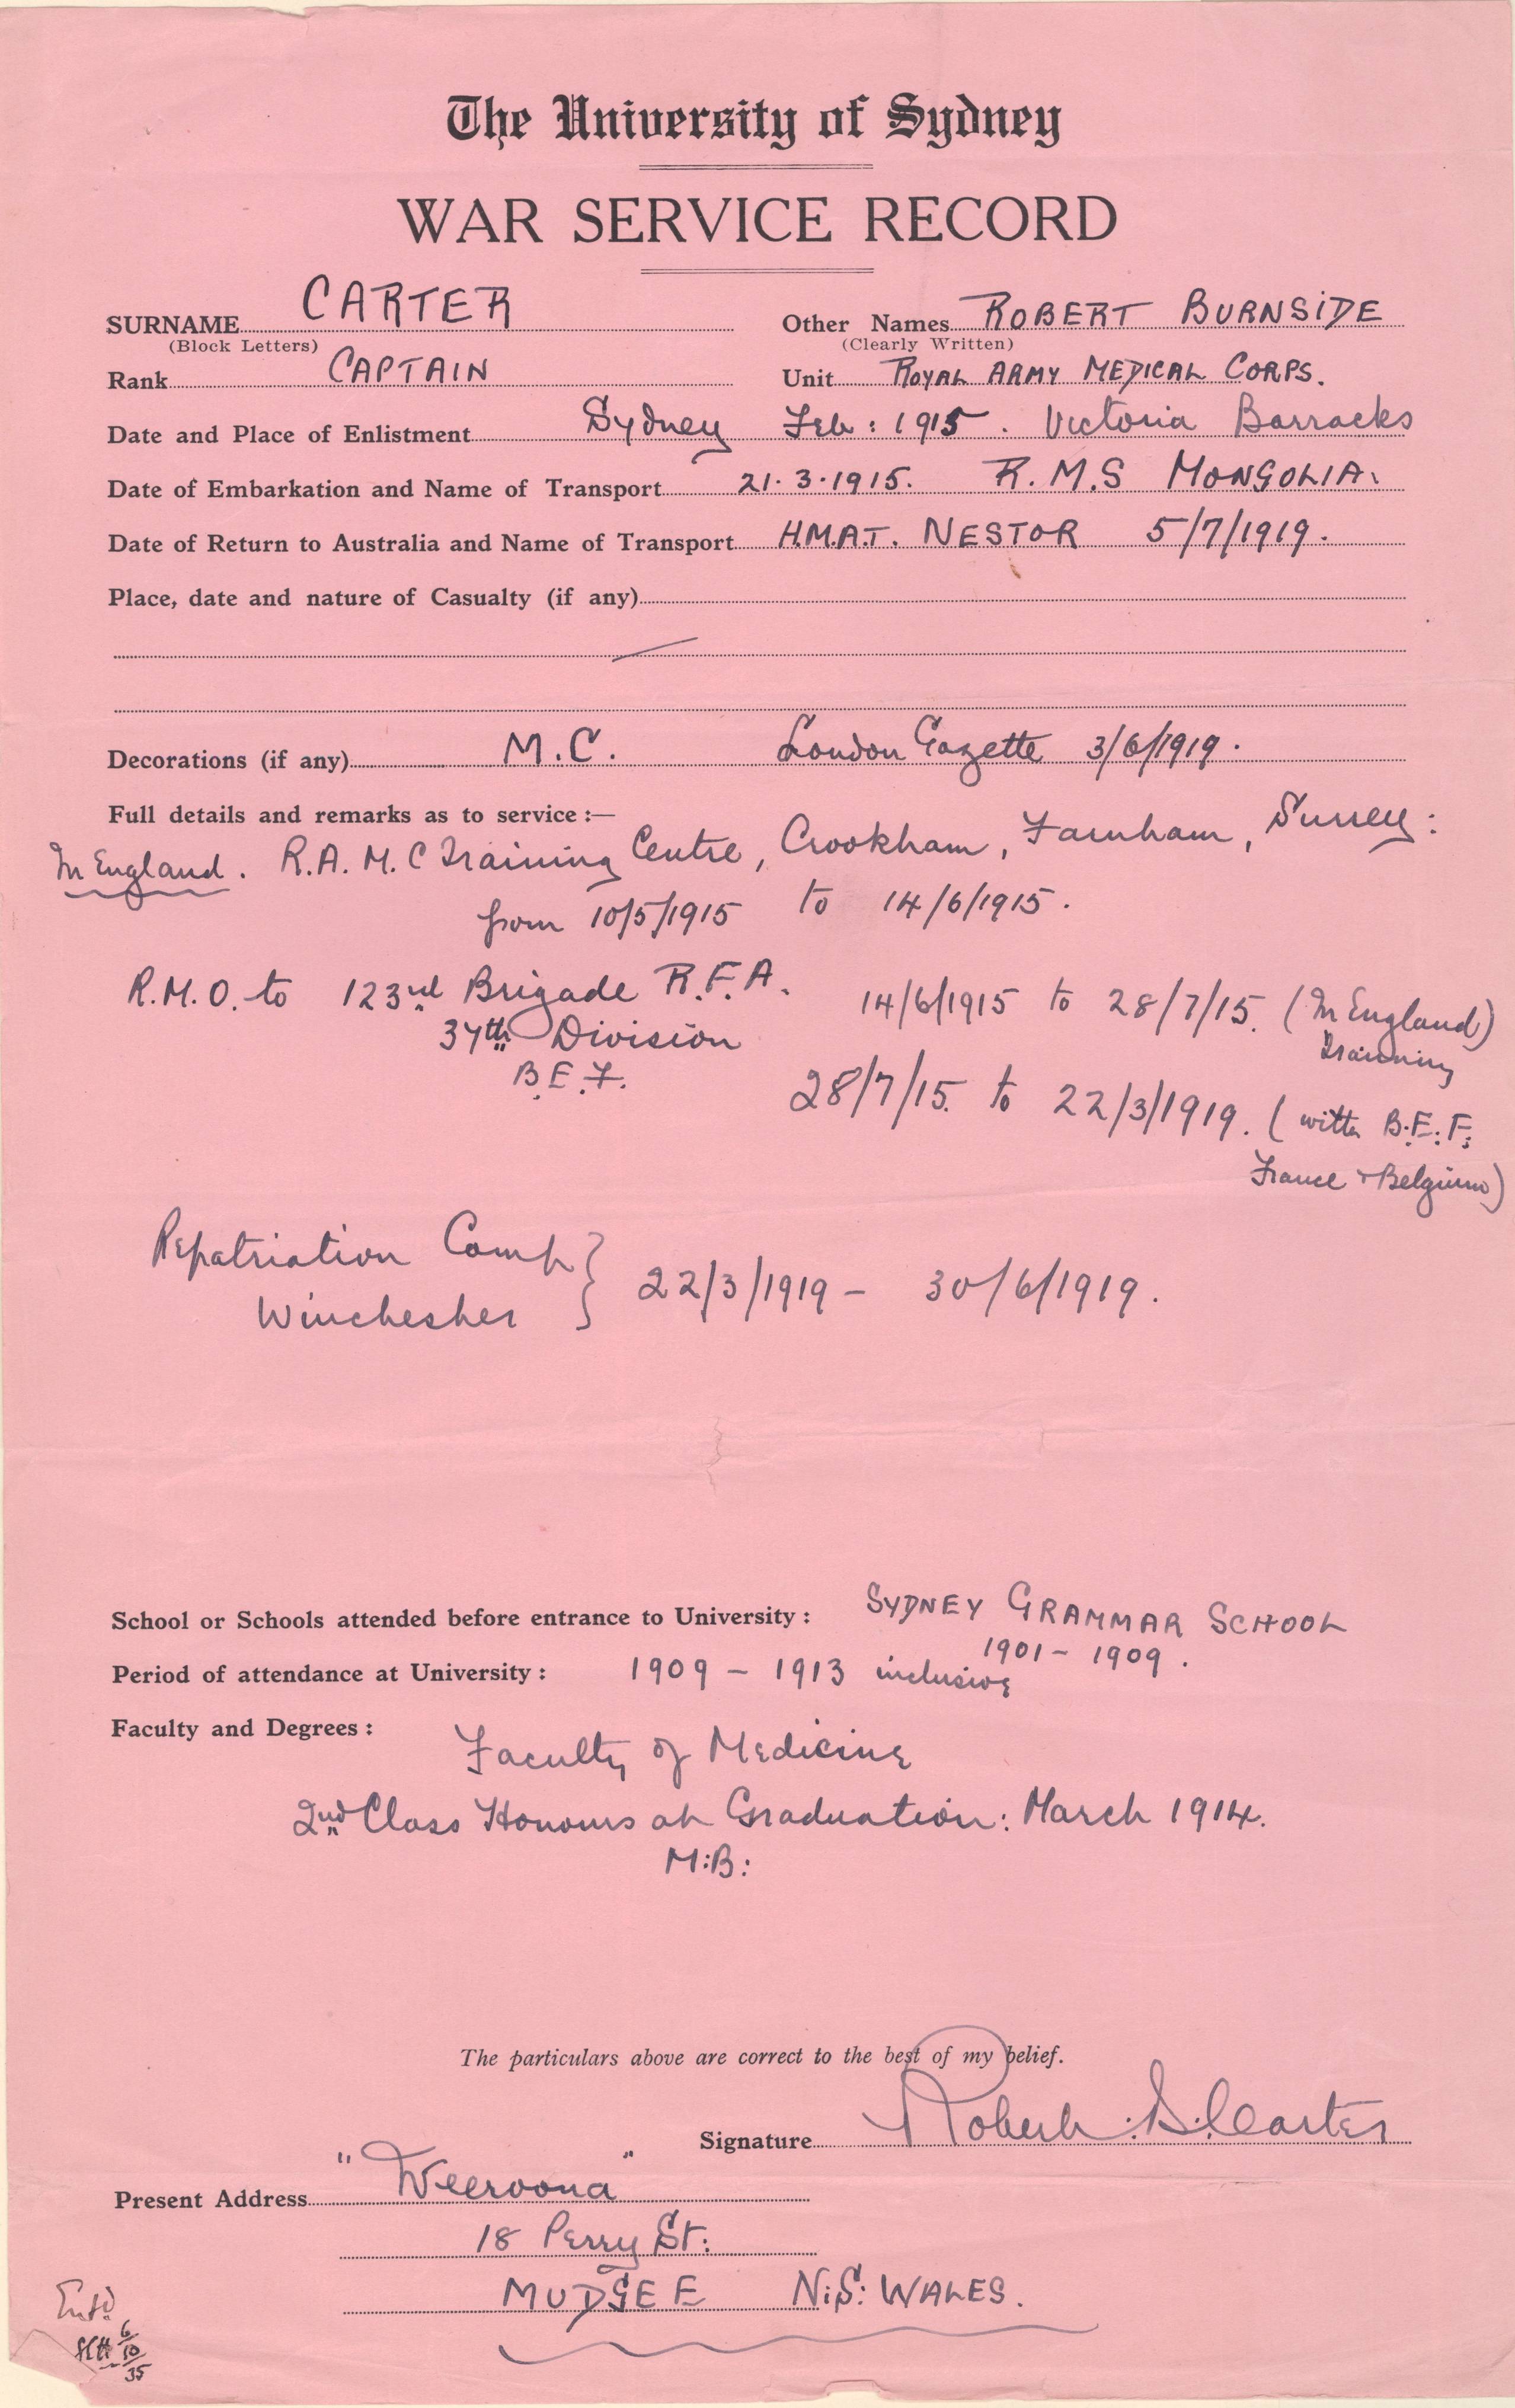 The University of Sydney
WAR SERVICE RECORD
SURNAME CARTER Other Names ROBERT BURNSIDE
(Block Letters) (Clearly Written)
Rank CAPTAIN Unit ROYAL ARMY MEDICAL CORPS.
Date and Place of Enlistment Sydney Feb: 1915. Victoria Barracks
Date of Embarkation and Name of Transport 21.3.1915. R.M.S MONGOLIA.
Date of Return to Australia and Name of Transport H.M.A.T. NESTOR 5/7/1919.
Place, date and nature of Casualty (if any)
Decorations (if any) M.C. London Gazette 3/6/1919.
Full details and remarks as to service:—
In England. R.A.M.C Training Centre, Crookham, Farnham, Surrey:
from 10/5/1915 to 14/6/1915.
R.M.O. to 123rd Brigade R.F.A. 14/6/1915 to 28/7/15. (In England)
37th Division Training
B.E.F. 28/7/15. to 22/3/1919. (with B.E.F.
France & Belgium)
Repatriation Camp
Winchester } 22/3/1919 - 30/6/1919.
School or Schools attended before entrance to University: SYDNEY GRAMMAR SCHOOL
1901 - 1909.
Period of attendance at University: 1909 - 1913 inclusive
Faculty and Degrees:
Faculty of Medicine
2nd Class Honours at Graduation: March 1914.
M:B:
The particulars above are correct to the best of my belief.
Signature Robert. B. Carter
Present Address "Weeroona"
18 Perry St:
MUDGEE N:S: WALES.
Entd
6/10/35